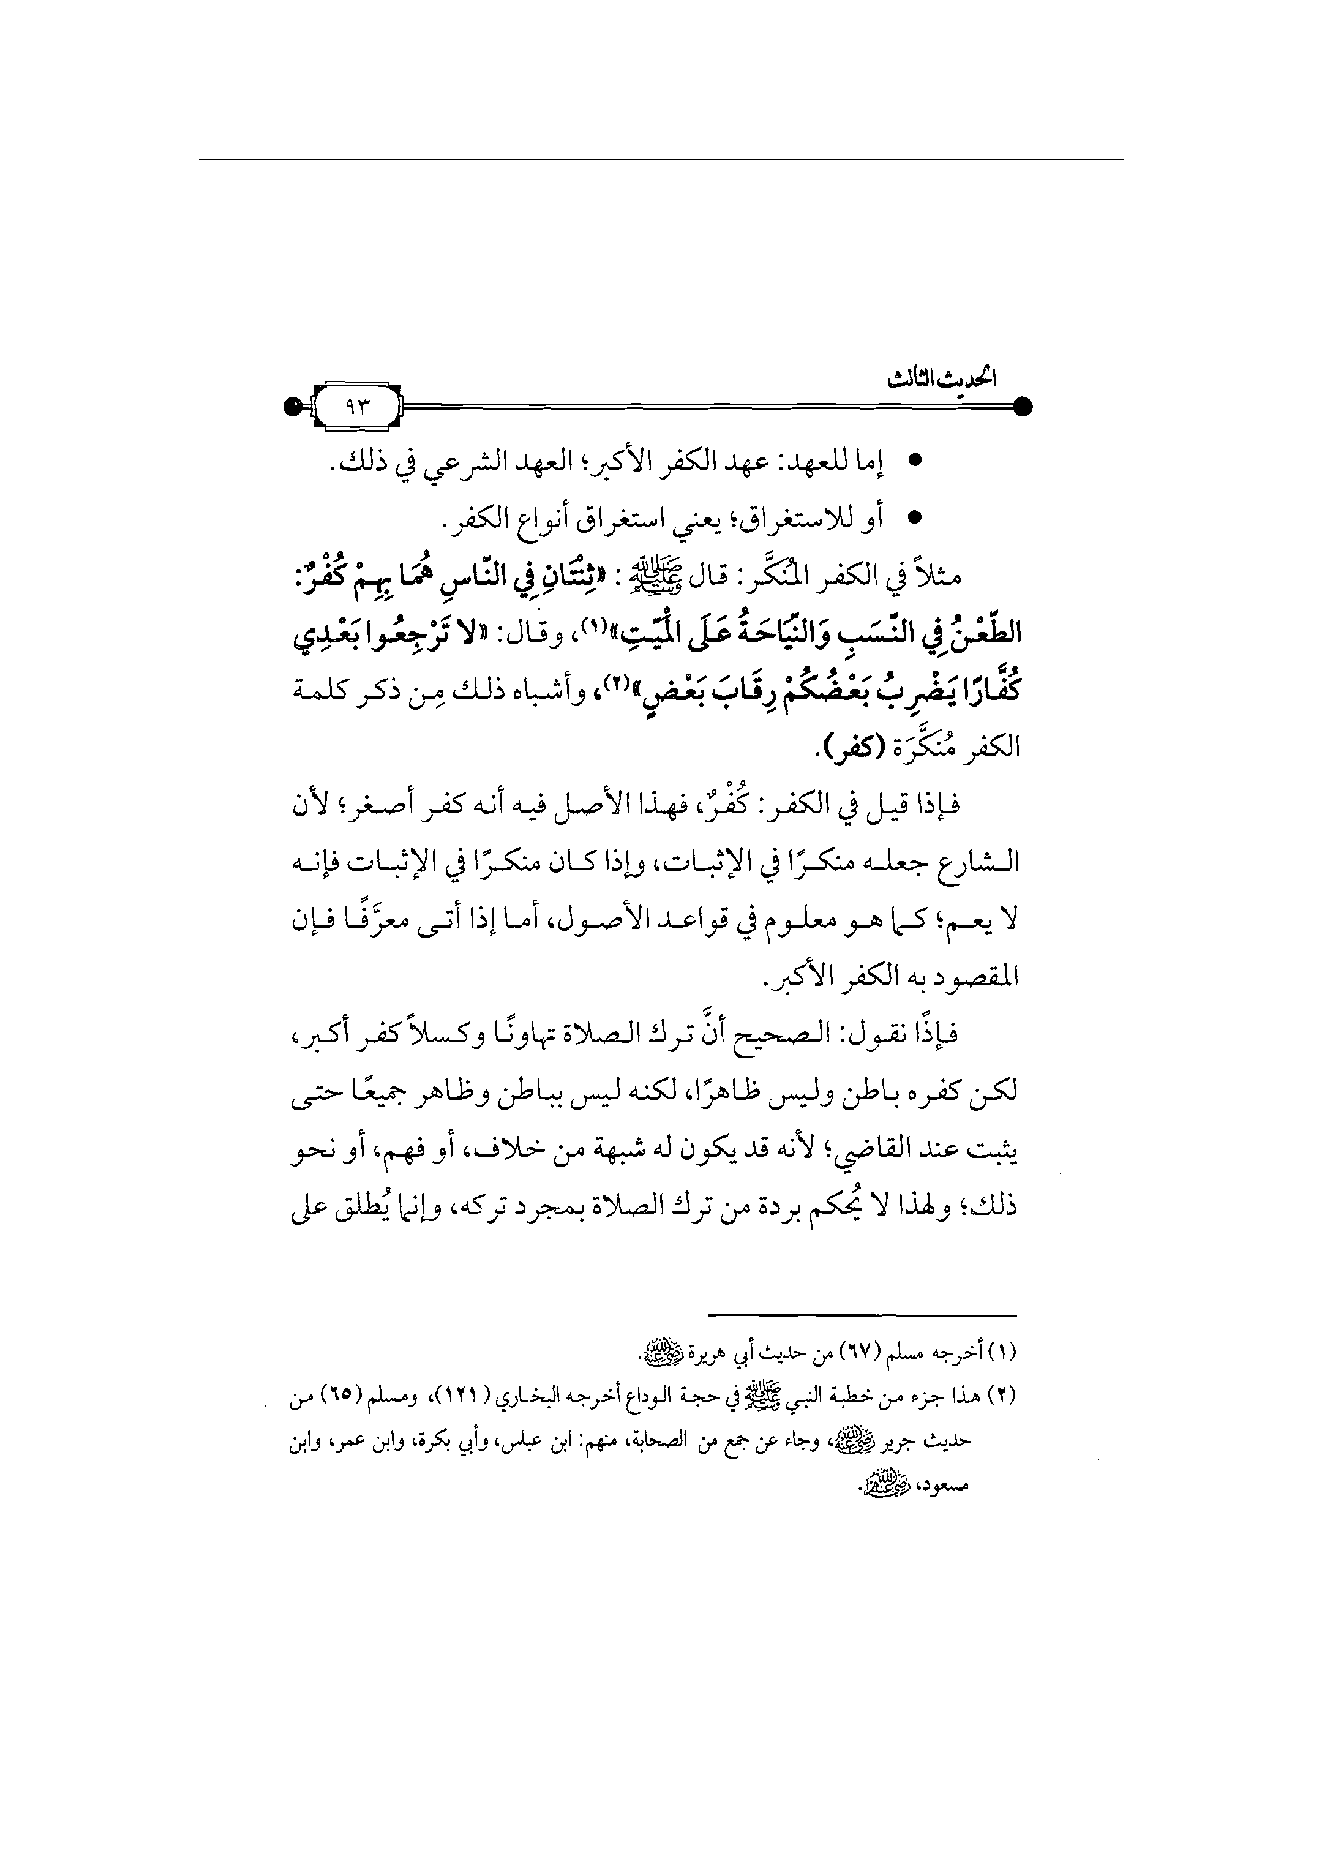 الحديث الثالث
٩٣
● إما للعهد: عهد الكفر الأكبر؛ العهد الشرعي في ذلك.
● أو للاستغراق؛ يعني استغراق أنواع الكفر.
مثلاً في الكفر المُنَكَّر: قال ﷺ: «ثِنْتَانِ فِي النَّاسِ هُمَا بِهِمْ كُفْرٌ:
الطَّعْنُ فِي النَّسَبِ وَالنِّيَاحَةُ عَلَى الْمَيِّتِ»(١)، وقال: «لا تَرْجِعُوا بَعْدِي
كُفَّارًا يَضْرِبُ بَعْضُكُمْ رِقَابَ بَعْضٍ»(٢)، وأشباه ذلك مِن ذكر كلمة
الكفر مُنَكَّرَة (كفر).
فإذا قيل في الكفر: كُفْرٌ، فهذا الأصل فيه أنه كفر أصغر؛ لأن
الشارع جعله منكرًا في الإثبات، وإذا كان منكرًا في الإثبات فإنه
لا يعم؛ كما هو معلوم في قواعد الأصول، أما إذا أتى معرَّفًا فإن
المقصود به الكفر الأكبر.
فإذًا نقول: الصحيح أنَّ ترك الصلاة تهاونًا وكسلاً كفر أكبر،
لكن كفره باطن وليس ظاهرًا، لكنه ليس بباطن وظاهر جميعًا حتى
يثبت عند القاضي؛ لأنه قد يكون له شبهة من خلاف، أو فهم، أو نحو
ذلك؛ ولهذا لا يُحكم بردة من ترك الصلاة بمجرد تركه، وإنما يُطلق على
(١) أخرجه مسلم (٦٧) من حديث أبي هريرة رضي الله عنه.
(٢) هذا جزء من خطبة النبي ﷺ في حجة الوداع أخرجه البخاري (١٢١)، ومسلم (٦٥) من
حديث جرير رضي الله عنه، وجاء عن جمع من الصحابة، منهم: ابن عباس، وأبي بكرة، وابن عمر، وابن
مسعود، رضي الله عنهم.